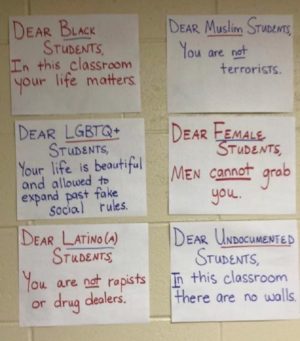 DEAR BLACK
STUDENTS,
In this classroom
your life matters.
DEAR Muslim STUDENTS,
You are not
terrorists.
DEAR LGBTQ+
STUDENTS,
Your life is beautiful
and allowed to
expand past fake
social rules.
DEAR FEMALE
STUDENTS,
MEN cannot grab
you.
DEAR LATINO(A)
STUDENTS,
You are not rapists
or drug dealers.
DEAR UNDOCUMENTED
STUDENTS,
In this classroom
there are no walls.